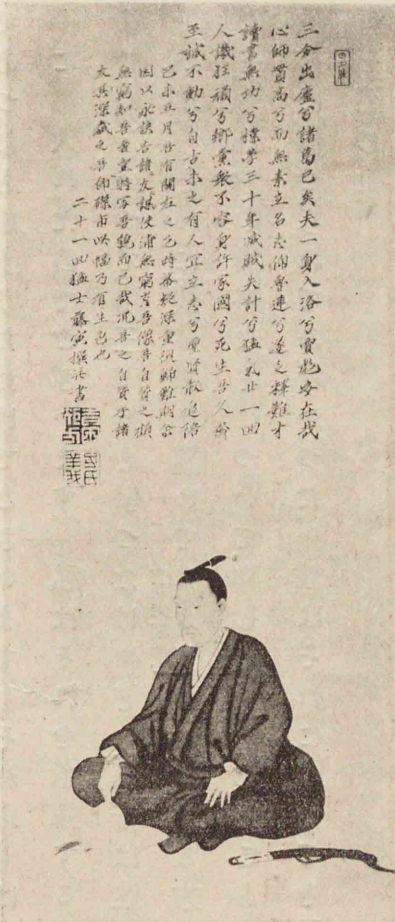 三分出廬兮諸葛已矣夫一身入洛兮賈彪安在哉
心師貫高兮而無素立名志仰魯連兮遂乏釋難才
讀書無功兮樸學三十年滅賊失計兮猛氣廿一回
人譏狂頑兮鄉黨衆不容身許家國兮死生吾久齊
至誠不動兮自古未之有人宜立志兮聖賢敢追陪
己未五月吾有關左之厄時幕疑深重復歸難期余
因以永訣告諸友謀使浦無窮肖吾像吾自賛之顧
無窮知吾者豈特寫吾貌而已哉況吾之自賛乎諸
友其深藏之吾即磔市此幅乃有生色也
二十一回猛士藤寅撰并書